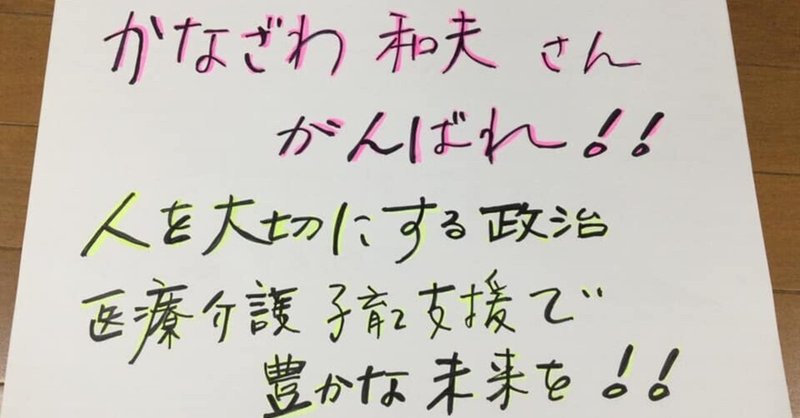 かなざわ 和夫 さん
がんばれ!!
人を大切にする政治
医療介護 子育て支援で
豊かな未来を!!